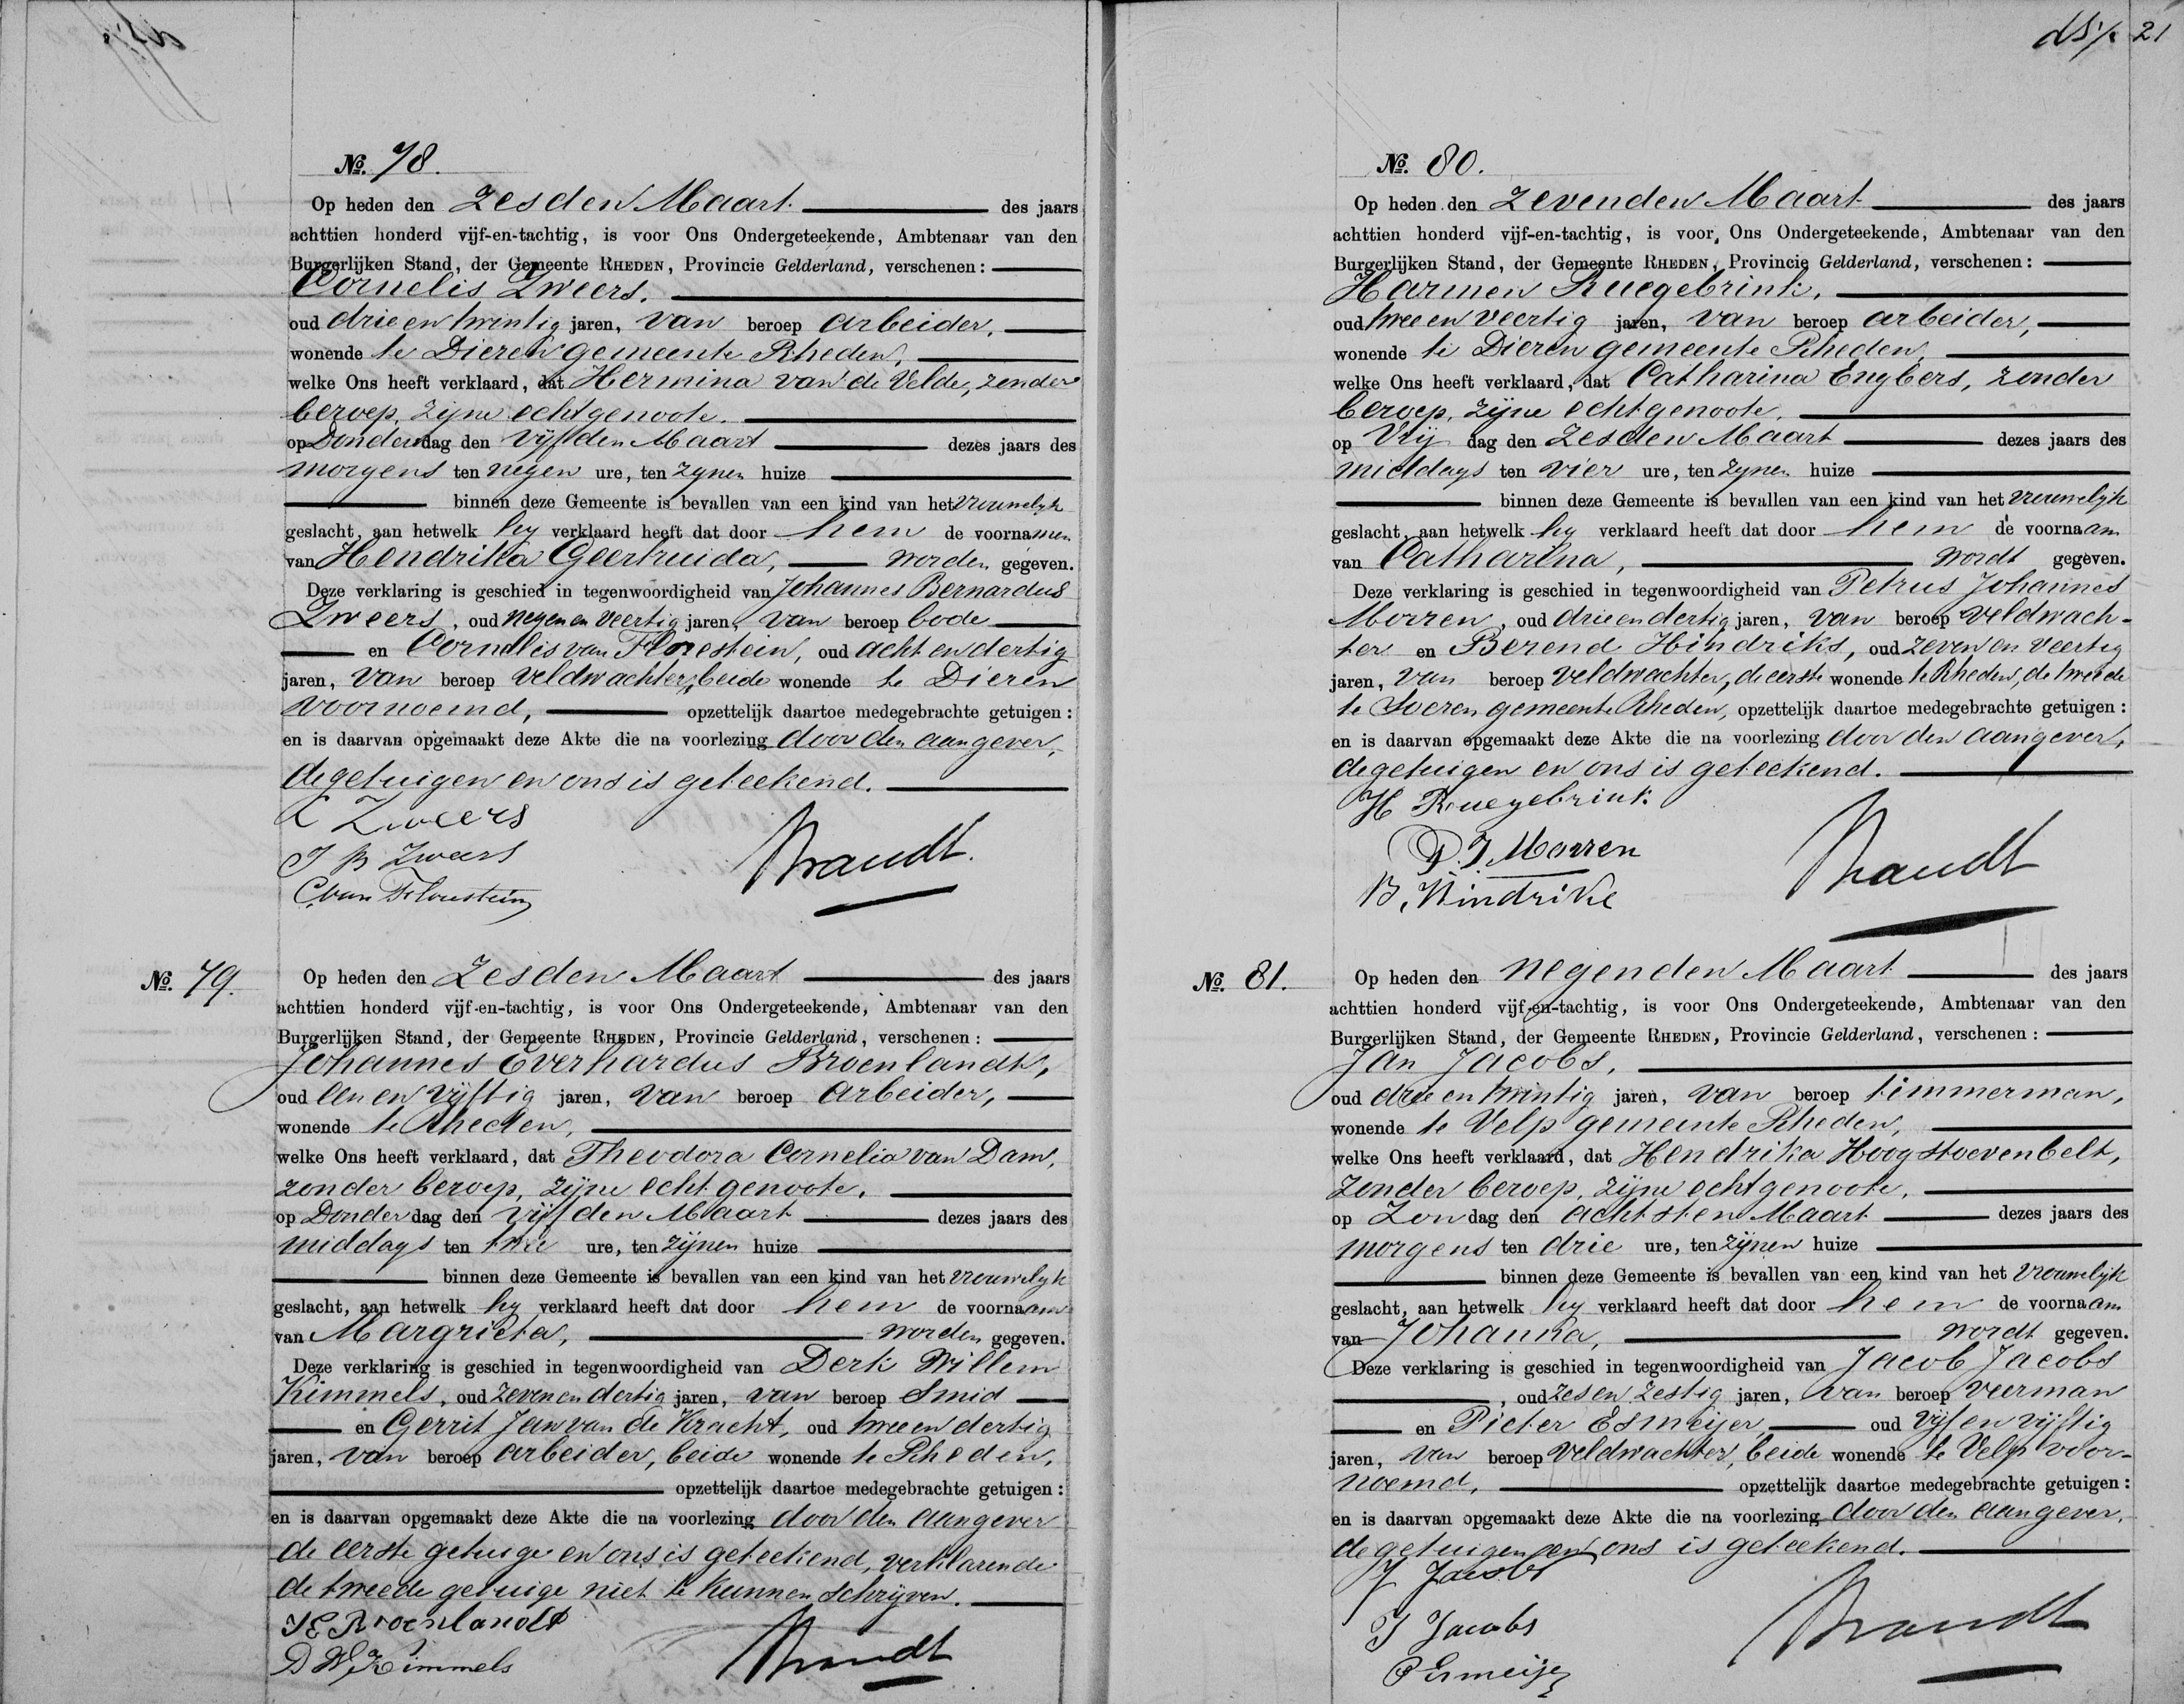 №. 78.
Op heden den Zesden Maart des jaars
achttien honderd vijf-en-tachtig, is voor Ons Ondergeteekende, Ambtenaar van den
Burgerlijken Stand, der Gemeente RHEDEN, Provincie Gelderland, verschenen:
Cornelis Zweers,
oud drie en twintig jaren, van beroep arbeider,
wonende te Dieren gemeente Rheden,
welke Ons heeft verklaard, dat Hermina van de Velde, zonder
beroep, zijne echtgenoote,
op Donderdag den vijfden Maart dezes jaars des
morgens ten negen ure, ten zynen huize
binnen deze Gemeente is bevallen van een kind van het vrouwelyk
geslacht, aan hetwelk hy verklaard heeft dat door hem de voornamen
van Hendrika Geertruida, worden gegeven.
Deze verklaring is geschied in tegenwoordigheid van Johannes Bernardus
Zweers, oud negen en veertig jaren, van beroep bode
en Cornelis van Florestein, oud acht en dertig
jaren, van beroep veldwachter, beide wonende te Dieren
voornoemd, opzettelijk daartoe medegebrachte getuigen:
en is daarvan opgemaakt deze Akte die na voorlezing door den aangever,
de getuigen en ons is geteekend.
C Zweers
J B Zweers
C van Florestein
Brandt.
№. 79.
Op heden den Zesden Maart des jaars
achttien honderd vijf-en-tachtig, is voor Ons Ondergeteekende, Ambtenaar van den
Burgerlijken Stand, der Gemeente RHEDEN, Provincie Gelderland, verschenen:
Johannes Everhardus Broenlandt,
oud een en vijftig jaren, van beroep arbeider,
wonende te Rheden,
welke Ons heeft verklaard, dat Theodora Cornelia van Dam,
zonder beroep, zijne echtgenoote,
op Donderdag den vijfden Maart dezes jaars des
middags ten twee ure, ten zijnen huize
binnen deze Gemeente is bevallen van een kind van het vrouwelyk
geslacht, aan hetwelk hy verklaard heeft dat door hem de voornaam
van Margrieta, worden gegeven.
Deze verklaring is geschied in tegenwoordigheid van Derk Willem
Kimmels, oud zeven en dertig jaren, van beroep smid
en Gerrit Jan van de Kracht, oud twee en dertig
jaren, van beroep arbeider, beide wonende te Rheden,
opzettelijk daartoe medegebrachte getuigen:
en is daarvan opgemaakt deze Akte die na voorlezing door den aangever
de eerste getuige en ons is geteekend, verklarende
de tweede getuige niet te kunnen schrijven.
J E Broenlandt
D W Kimmels
Brandt
21
№. 80.
Op heden den Zevenden Maart des jaars
achttien honderd vijf-en-tachtig, is voor Ons Ondergeteekende, Ambtenaar van den
Burgerlijken Stand, der Gemeente RHEDEN, Provincie Gelderland, verschenen:
Harmen Ruegebrink,
oud twee en veertig jaren, van beroep arbeider,
wonende te Dieren gemeente Rheden,
welke Ons heeft verklaard, dat Catharina Engbers, zonder
beroep, zijne echtgenoote,
op Vrij dag den zesden Maart dezes jaars des
middags ten vier ure, ten zynen huize
binnen deze Gemeente is bevallen van een kind van het vrouwelyk
geslacht, aan hetwelk hy verklaard heeft dat door hem de voornaam
van Catharina, wordt gegeven.
Deze verklaring is geschied in tegenwoordigheid van Petrus Johannes
Morren, oud drie en dertig jaren, van beroep veldwach-
ter en Berend Hindriks, oud zeven en veertig
jaren, van beroep veldwachter, de eerste wonende te Rheden, de tweede
te Soeren gemeente Rheden, opzettelijk daartoe medegebrachte getuigen:
en is daarvan opgemaakt deze Akte die na voorlezing door den aangever,
de getuigen en ons is geteekend.
H Ruegebrink
P. J Morren
B, Hindriks
Brandt
№. 81.
Op heden den negenden Maart des jaars
achttien honderd vijf-en-tachtig, is voor Ons Ondergeteekende, Ambtenaar van den
Burgerlijken Stand, der Gemeente RHEDEN, Provincie Gelderland, verschenen:
Jan Jacobs,
oud drie en twintig jaren, van beroep timmerman,
wonende te Velp gemeente Rheden,
welke Ons heeft verklaard, dat Hendrika Hoogstoevenbelt,
zonder beroep, zijne echtgenoote,
op Zondag den achtsten Maart dezes jaars des
morgens ten drie ure, ten zijnen huize
binnen deze Gemeente is bevallen van een kind van het vrouwelijk
geslacht, aan hetwelk hy verklaard heeft dat door hem de voornaam
van Johanna, wordt gegeven.
Deze verklaring is geschied in tegenwoordigheid van Jacob Jacobs
, oud zes en zestig jaren, van beroep veerman
en Pieter Esmeijer, oud vijf en vijftig
jaren, van beroep veldwachter, beide wonende te Velp voor-
noemd, opzettelijk daartoe medegebrachte getuigen:
en is daarvan opgemaakt deze Akte die na voorlezing door den aangever,
de getuigen en ons is geteekend.
J Jacobs
J Jacobs
P Esmeijer
Brandt